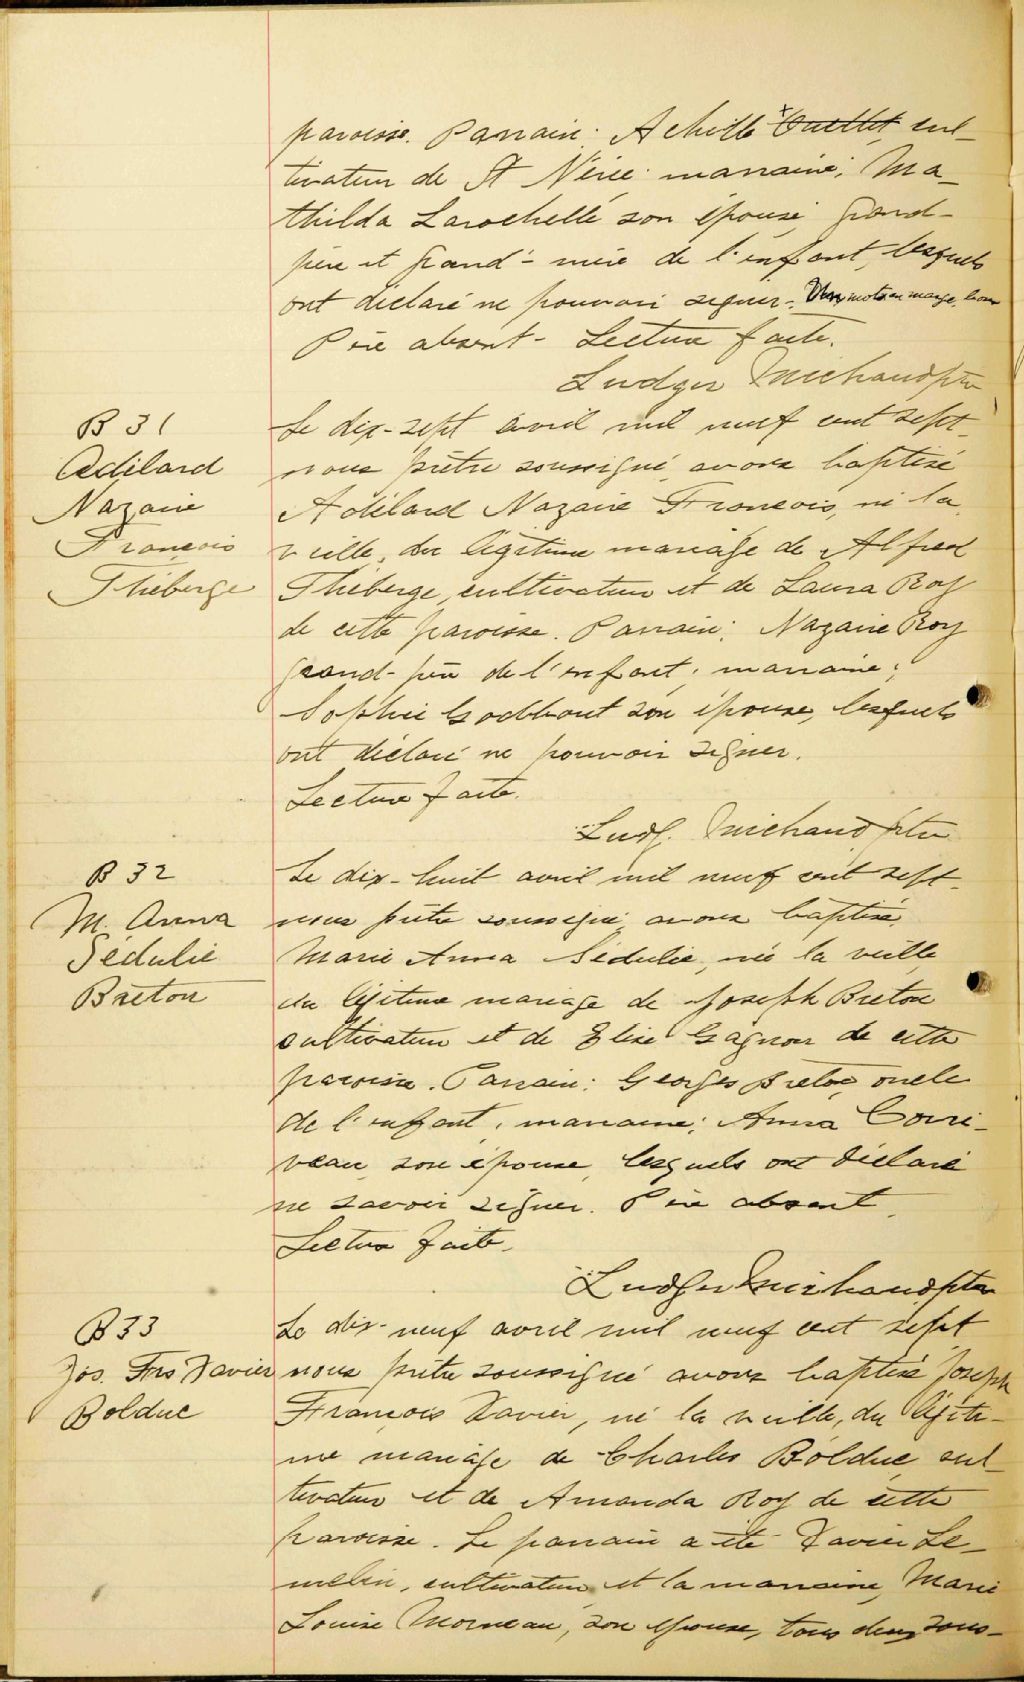 paroisse. Parrain: Achille Ouellet, cul-
tivateur de St Nérée; marraine; Ma-
thilda Larochelle son épouse, grand-
père et grand'-mère de l'enfant, lesquels
ont déclaré ne pouvoir signer. mots en marge, bons
Père absent - Lecture faite.
Ludger Michaud ptre
B 31
Adélard
Nazaire
François
Théberge
Le dix-sept avril mil neuf cent sept,
nous prêtre soussigné, avons baptisé
Adélard Nazaire François, né la
veille, du légitime mariage de Alfred
Théberge, cultivateur et de Laura Roy
de cette paroisse. Parrain: Nazaire Roy
grand-père de l'enfant; marraine;
Sophie Godbout son épouse, lesquels
ont déclaré ne pouvoir signer.
Lecture faite.
Ludg. Michaud ptre
B 32
M. Anna
Sédulie
Breton
Le dix-huit avril mil neuf cent sept,
nous prêtre soussigné, avons baptisé,
Marie Anna Sédulie, née la veille,
du légitime mariage de Joseph Breton
cultivateur et de Elise Gagnon de cette
paroisse. Parrain: Georges Breton, oncle
de l'enfant; marraine; Anna Corri-
veau, son épouse, lesquels ont déclaré
ne savoir signer. Père absent.
Lecture faite.
Ludger Michaud ptre
B 33
Jos. Frs Xavier
Bolduc
Le dix-neuf avril mil neuf cent sept
nous prêtre soussigné avons baptisé Joseph
François Xavier, né la veille, du légiti-
me mariage de Charles Bolduc, cul-
tivateur et de Amanda Roy de cette
paroisse. Le parrain a été Xavier Le-
melin, cultivateur et la marraine, Marie
Louise Morneau, son épouse, tous deux sous-